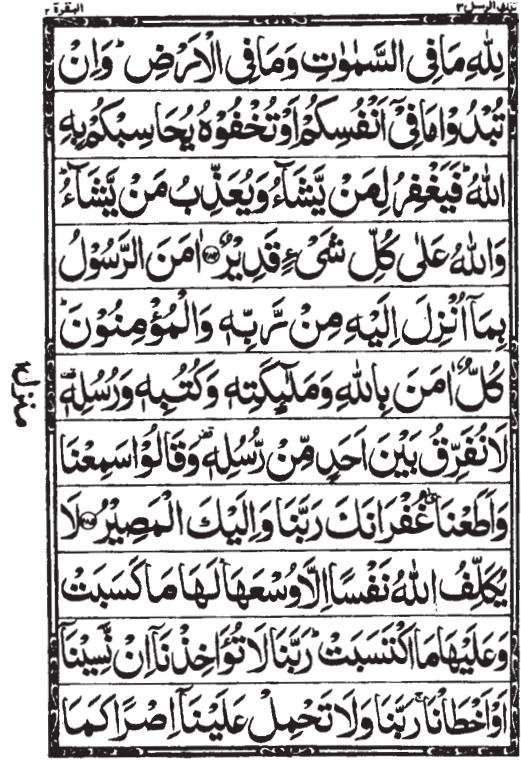 تلك الرسل ٣ البقرة ٢
لِلّٰهِ مَا فِی السَّمٰوٰتِ وَمَا فِی الْاَرْضِ ؕ وَاِنْ
تُبْدُوْا مَا فِیْۤ اَنْفُسِكُمْ اَوْ تُخْفُوْهُ یُحَاسِبْكُمْ بِهِ
اللّٰهُ ؕ فَیَغْفِرُ لِمَنْ یَّشَآءُ وَیُعَذِّبُ مَنْ یَّشَآءُ ؕ
وَاللّٰهُ عَلٰی كُلِّ شَیْءٍ قَدِیْرٌ ﴿۲۸۴﴾ اٰمَنَ الرَّسُوْلُ
بِمَاۤ اُنْزِلَ اِلَیْهِ مِنْ رَّبِّهٖ وَالْمُؤْمِنُوْنَ ؕ
كُلٌّ اٰمَنَ بِاللّٰهِ وَمَلٰٓىِٕكَتِهٖ وَكُتُبِهٖ وَرُسُلِهٖ ۫
لَا نُفَرِّقُ بَیْنَ اَحَدٍ مِّنْ رُّسُلِهٖ ۫ وَقَالُوْا سَمِعْنَا
وَاَطَعْنَا ۫ غُفْرَانَكَ رَبَّنَا وَاِلَیْكَ الْمَصِیْرُ ﴿۲۸۵﴾ لَا
یُكَلِّفُ اللّٰهُ نَفْسًا اِلَّا وُسْعَهَا ؕ لَهَا مَا كَسَبَتْ
وَعَلَیْهَا مَا اكْتَسَبَتْ ؕ رَبَّنَا لَا تُؤَاخِذْنَاۤ اِنْ نَّسِیْنَاۤ
اَوْ اَخْطَاْنَا ۚ رَبَّنَا وَلَا تَحْمِلْ عَلَیْنَاۤ اِصْرًا كَمَا
منزل ۱